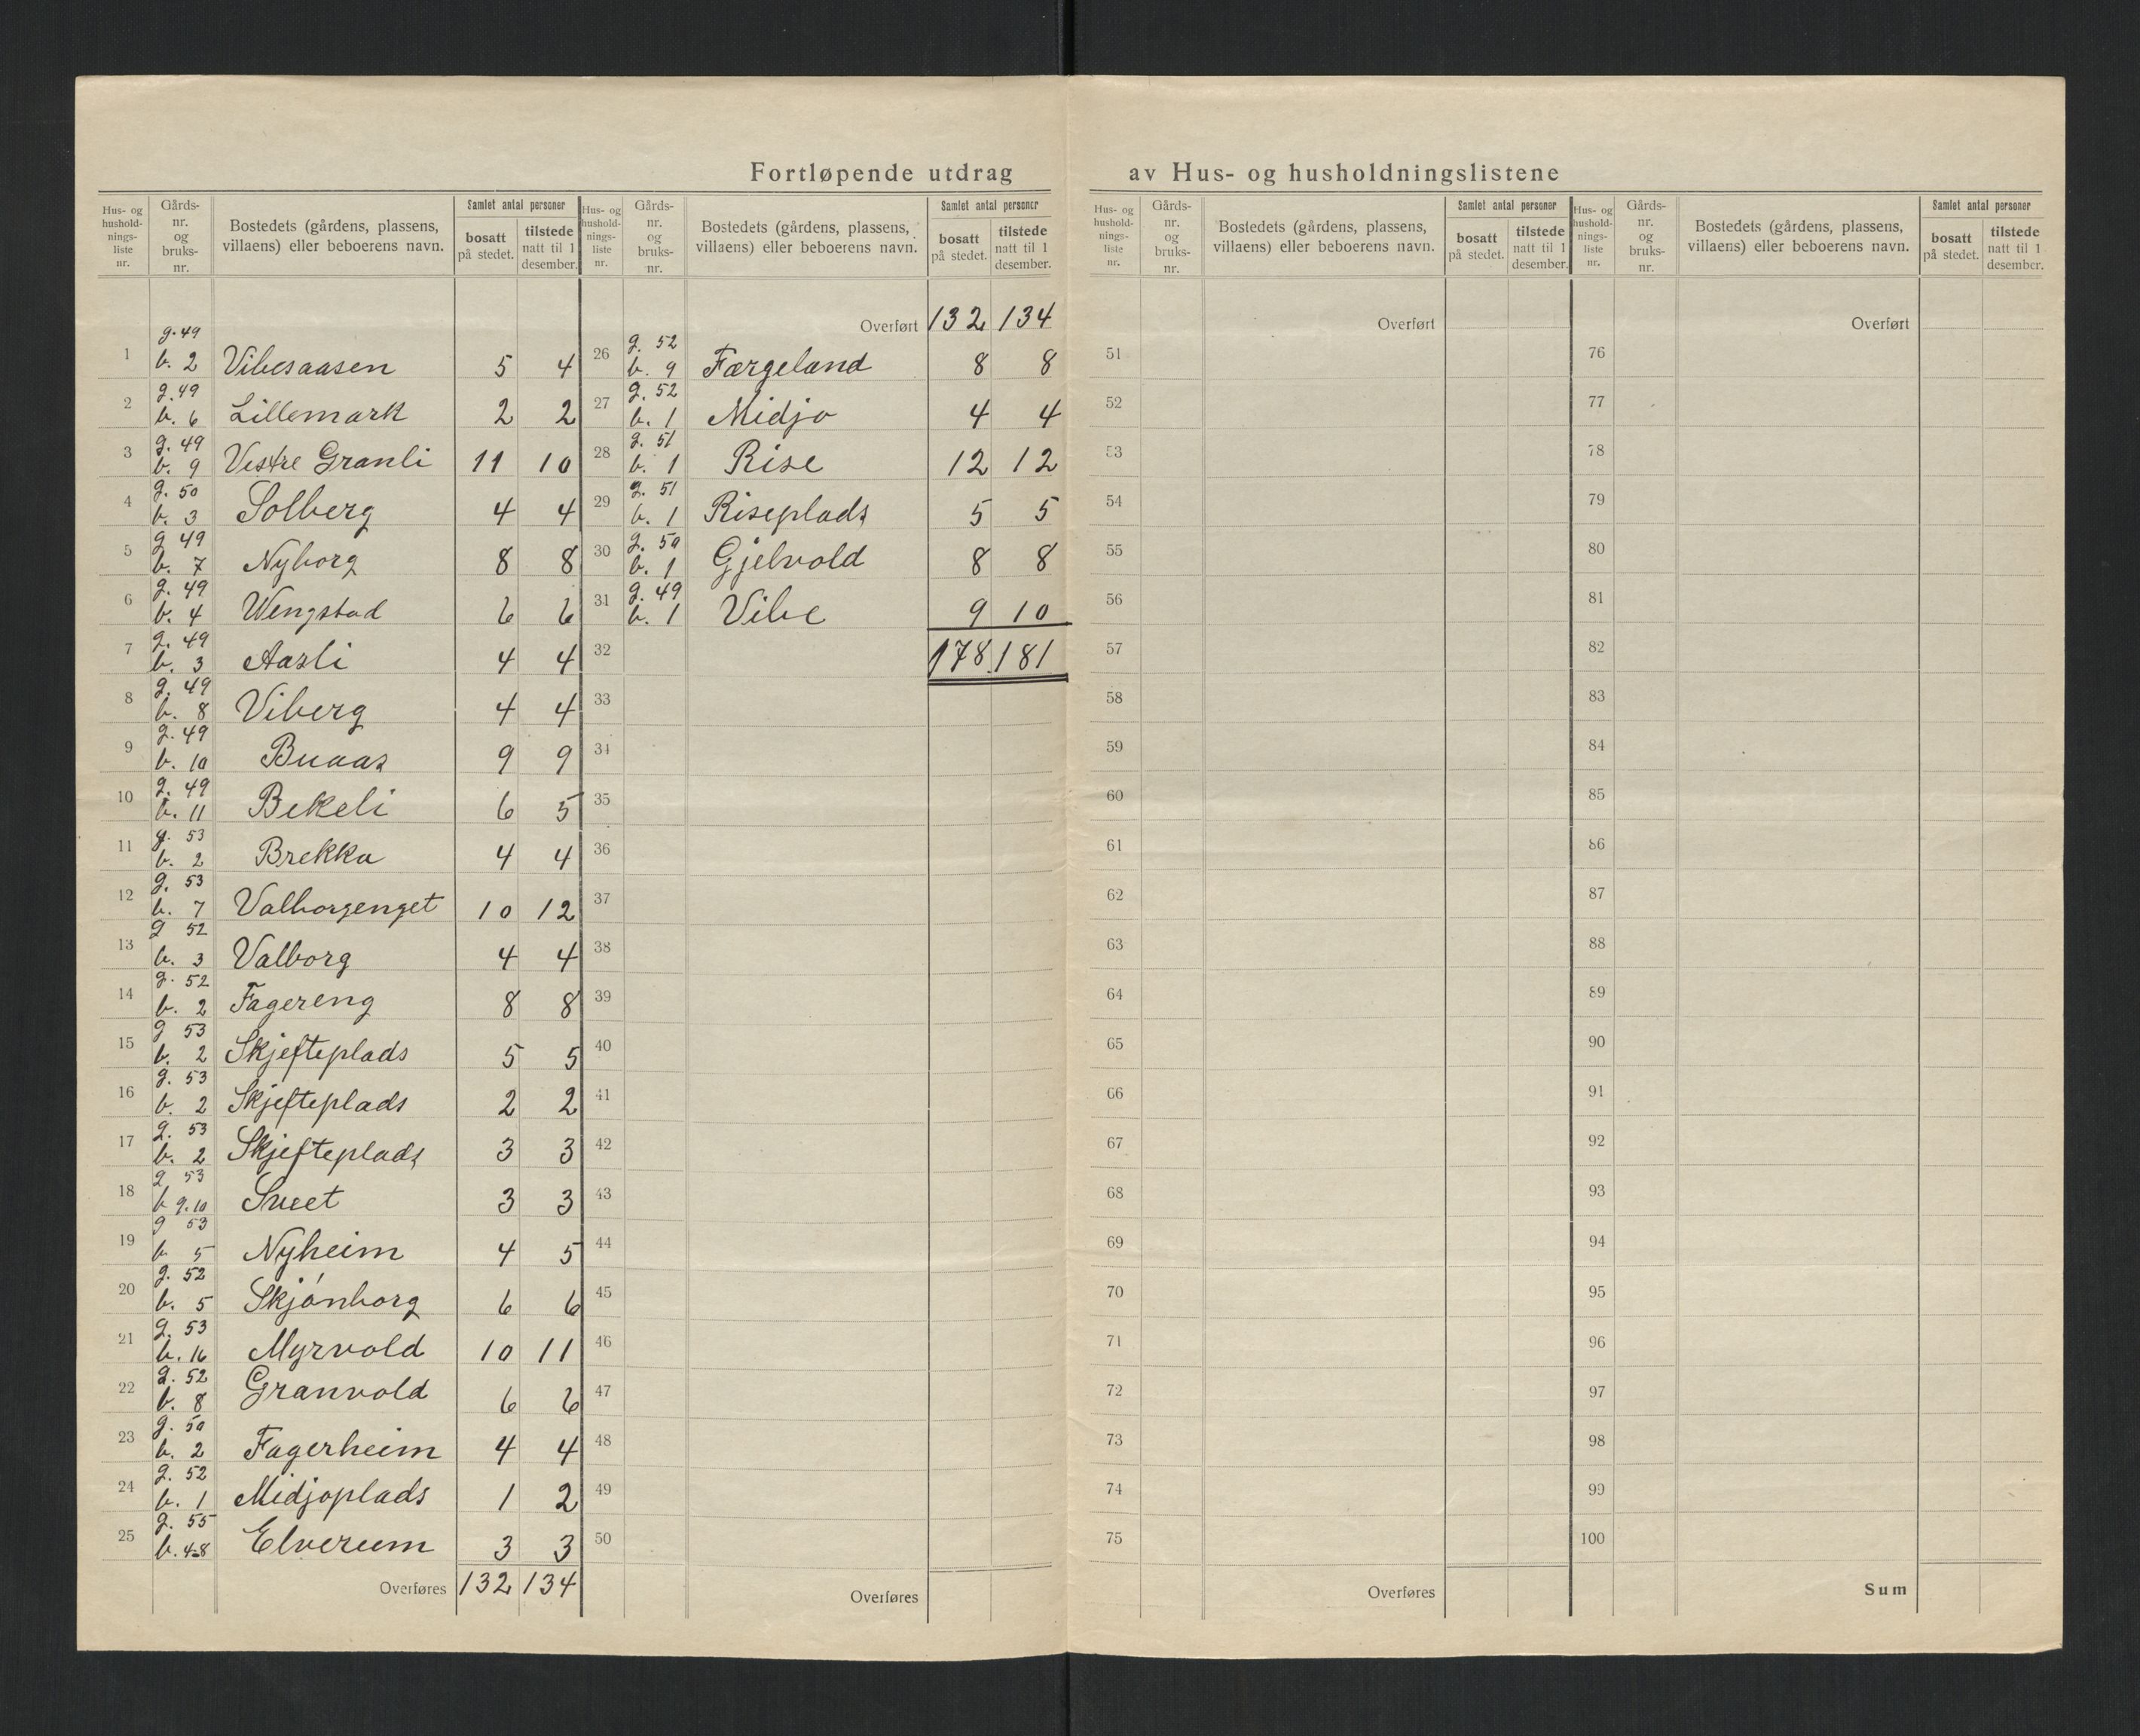 Fortløpende utdrag av Hus- og husholdningslistene
Hus- og hushold-nings-liste nr. Gårds-nr. og bruks-nr. Bostedets (gårdens, plassens, villaens) eller beboerens navn. Samlet antal personer bosatt på stedet. tilstede natt til 1 desember.
1 g. 49 b. 2 Vibesaasen 5 4
2 g. 49 b. 6 Lillemark 2 2
3 g. 49 b. 9 Vestre Granli 11 10
4 g. 50 b. 3 Solberg 4 4
5 g 49 b. 7 Nyborg 8 8
6 g. 49 b. 4 Wengstad 6 6
7 g. 49 b. 3 Aasli 4 4
8 g. 49 b. 8 Viberg 4 4
9 g. 49 b. 10 Buaas 9 9
10 g. 49 b. 11 Bekeli 6 5
11 g. 53 b. 2 Brekka 4 4
12 g. 53 b. 7 Valborgenget 10 12
13 g 52 b. 3 Valborg 4 4
14 g. 52 b. 2 Fagereng 8 8
15 g 53 b. 2 Skjefteplads 5 5
16 g. 53 b. 2 Skjefteplads 2 2
17 g. 53 b. 2 Skjefteplads 3 3
18 g 53 b 9.10 Sveet 3 3
19 g 53 b 5 Nyheim 4 5
20 g. 52 b. 5 Skjónborg 6 6
21 g. 53 b. 16 Myrvold 10 11
22 g. 52 b. 8 Granvold 6 6
23 g. 50 b. 2 Fagerheim 4 4
24 g. 52 b. 1 Midjoplads 1 2
25 g. 55 b. 4-8 Elverum 3 3
Overføres 132 134
Hus- og hushold-nings-liste nr. Gårds-nr. og bruks-nr. Bostedets (gårdens, plassens, villaens) eller beboerens navn. Samlet antal personer bosatt på stedet. tilstede natt til 1 desember.
Overført 132 134
26 g. 52 b. 9 Færgeland 8 8
27 g. 52 b. 1 Midjo 4 4
28 g. 51 b. 1 Rise 12 12
29 g. 51 b. 1 Riseplads 5 5
30 g. 50 b. 1 Gjelvold 8 8
31 g. 49 b. 1 Vibe 9 10
32 178 181
33
34
35
36
37
38
39
40
41
42
43
44
45
46
47
48
49
50
Overføres
Hus- og hushold-nings-liste nr. Gårds-nr. og bruks-nr. Bostedets (gårdens, plassens, villaens) eller beboerens navn. Samlet antal personer bosatt på stedet. tilstede natt til 1 desember.
Overført
51
52
53
54
55
56
57
58
59
60
61
62
63
64
65
66
67
68
69
70
71
72
73
74
75
Overføres
Hus- og hushold-nings-liste nr. Gårds-nr. og bruks-nr. Bostedets (gårdens, plassens, villaens) eller beboerens navn. Samlet antal personer bosatt på stedet. tilstede natt til 1 desember.
Overført
76
77
78
79
80
81
82
83
84
85
86
87
88
89
90
91
92
93
94
95
96
97
98
99
100
Sum